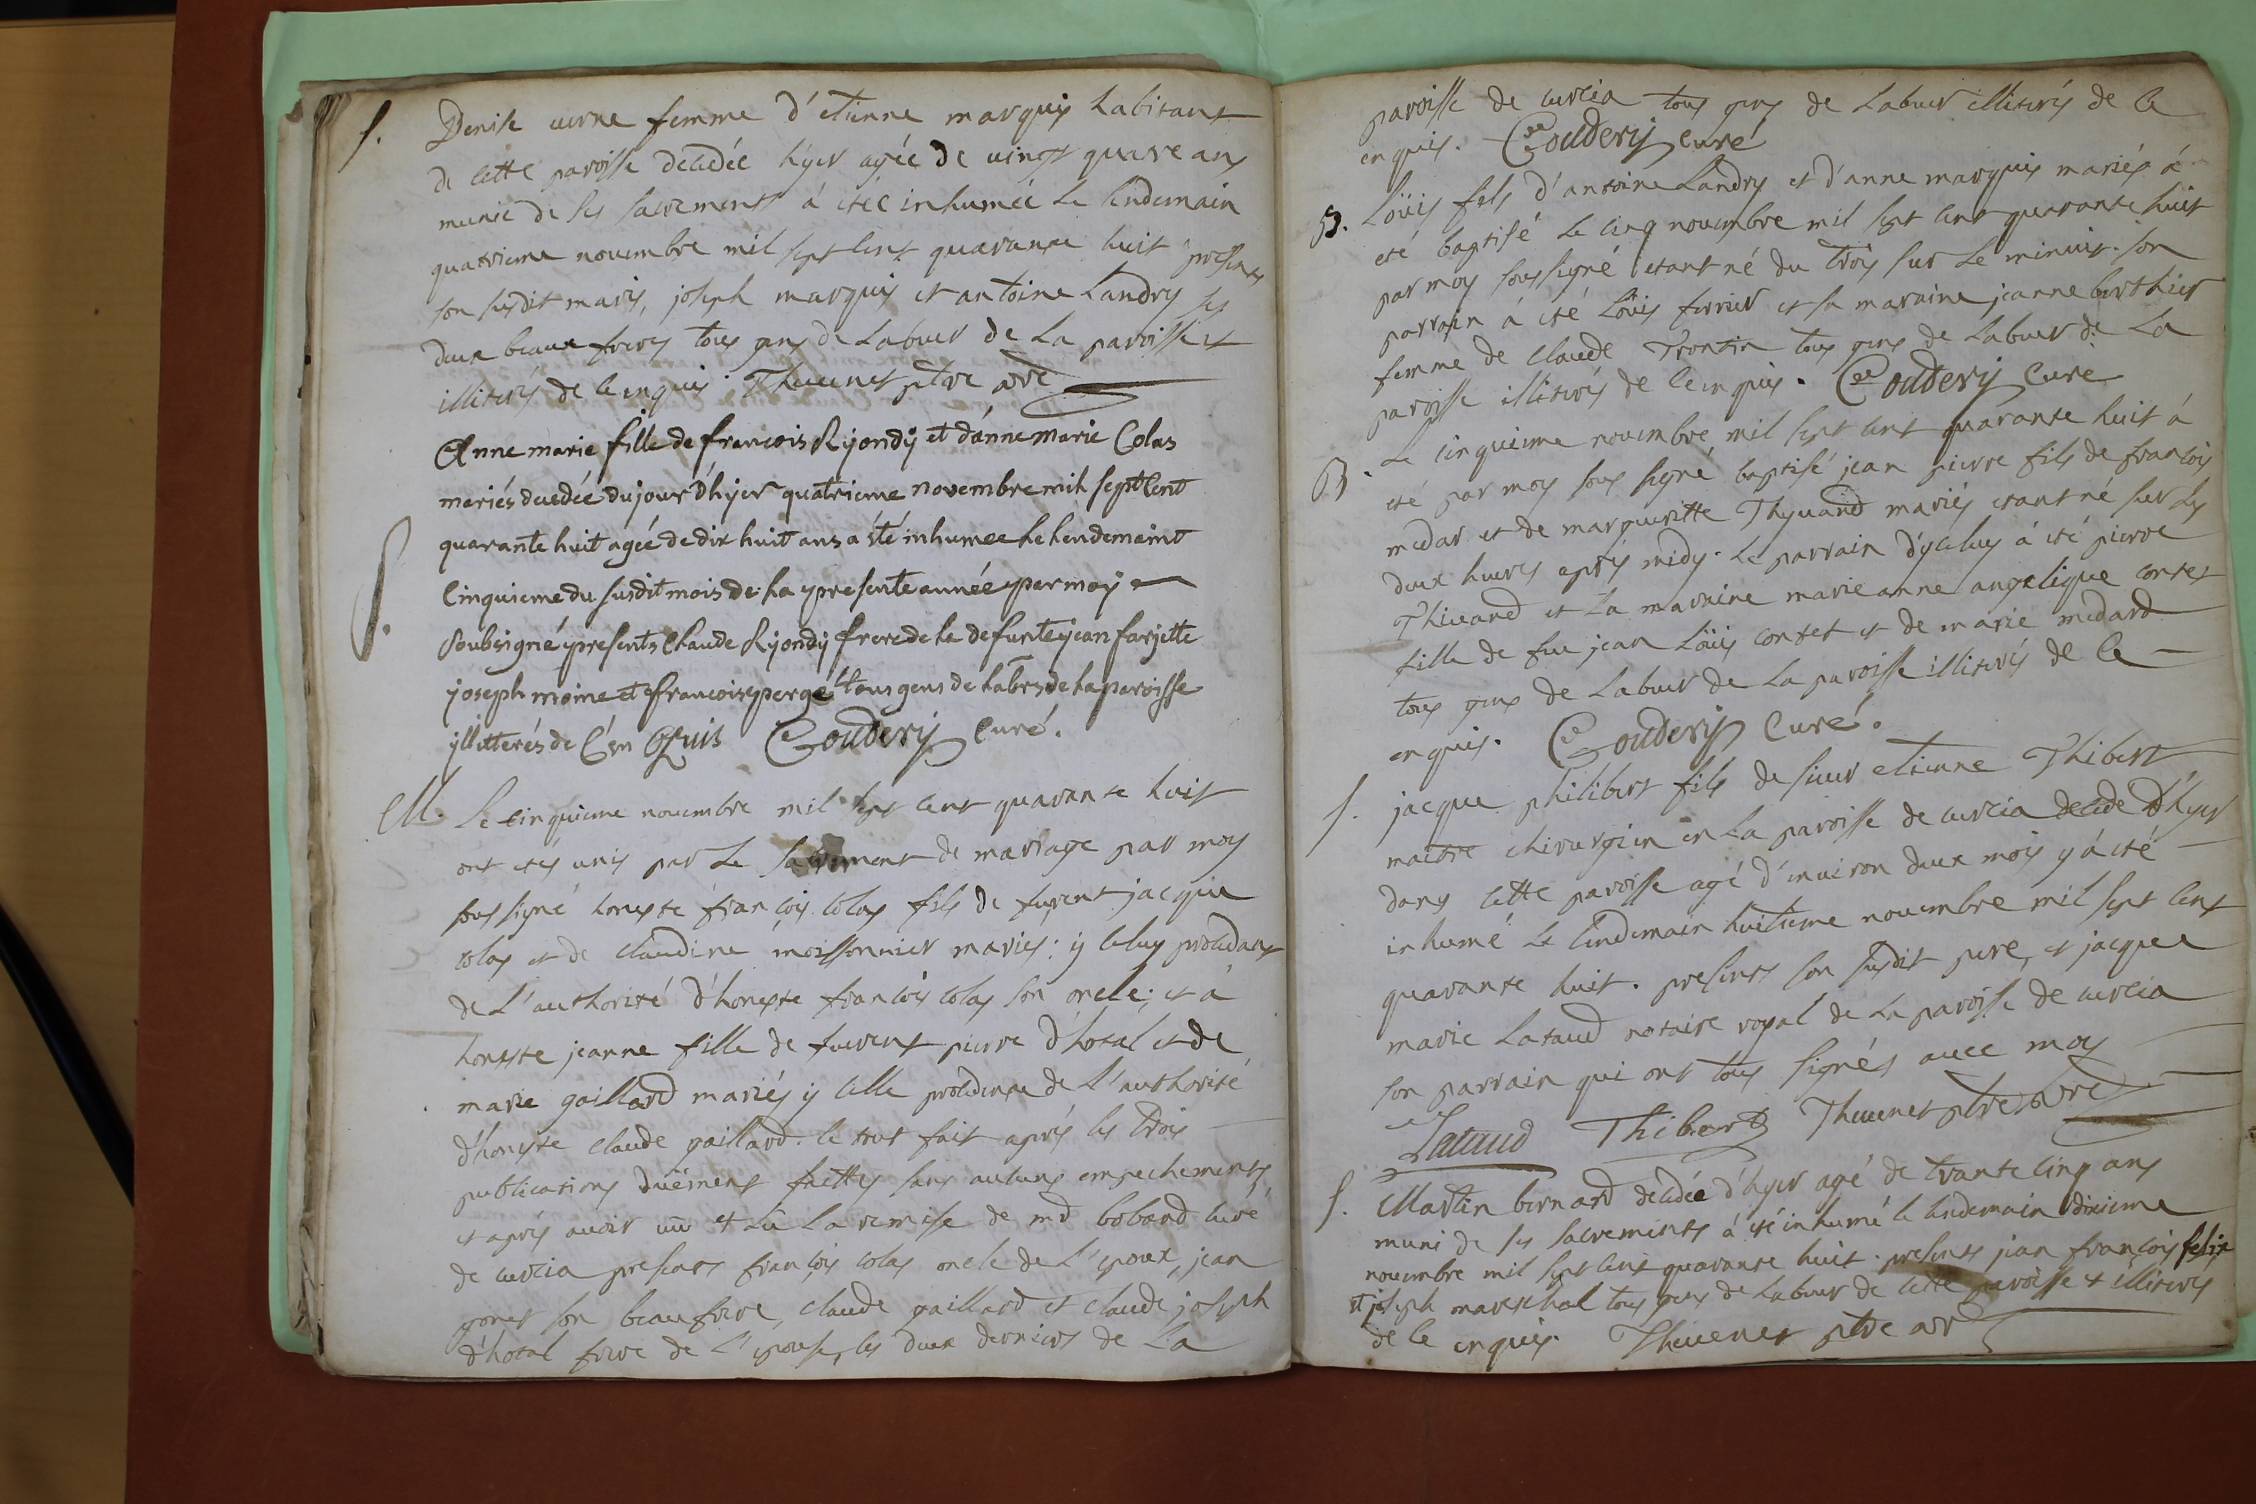 S. Denise verne femme d'etienne marquis habitant
de cette paroisse decedée hÿer agée de vingt quatre ans
munie de ses sacrements á etéé inhumée le lendemain
quatrieme novembre mil sept cent quarante huit presents
son susdit mary, joseph marquis et antoine Landry ses
deux beaux freres tous gens de Labeur de La paroisse et
illiterés de ce enquis. Thevenet ptre
Anne marie fille de françois Ryondÿ et d'anne marie Colas
mariés decedée du jour d'hÿer quatrieme novembre mil sept Cent
quarante huit agée de dix huit ans a êté inhumee le lendemaint
Cinquieme du susdit mois de la presente année par moÿ
S. Soubsigné presents Claude Ryondÿ frere de la defunte jean farjette
joseph moine et francois pergé tous gens de labeur de la paroisse
ÿllitterés de C'en Quis Couderij Curé.
M. Le cinquieme novembre mil sept cent quarante huit
ont etés unis par Le sacrement de mariage par moy
soussigné honeste françois colas fils de furent jacque
colas et de claudine moissonnier mariés; y celuy procedant
de L'authorité d'honeste françois colas son oncle; et á
honeste jeanne fille de furent pierre d'hotal et de
marie gaillard mariés y celle procedente de L'authorité
d'honeste claude gaillard. le tout fait aprés les trois
publications düement faittes sans aucuns empechements,
et aprés avoir vü et Lû La remise de mr bobard curé
de curcia presents françois colas oncle de L'epoux, jean
ponet son beaufrere, claude gaillard et claude joseph
d'hotal frere de L'epouse, les deux derniers de La
paroisse de curcia tous gens de Labeur illiterés de ce
enquis. Couderij curé
B. Loüis fils d'antoine Landry et d'anne marquis mariés á
eté baptisé le cinq novembre mil sept cent quarante huit
par moy soussigné etant né du trois sur Le minuit. son
parrain á eté Loüis ferrier et sa maraine jeanne berthier
femme de claude Trontin tous gens de Labeur de La
paroisse illiterés de ce enquis. Couderij Curé
B. Le cinquieme novembre mil sept cent quarante huit á
eté par moy sous signé baptisé jean pierre fils de françois
medar et de margueritte Thyvand mariés etant né sur les
deux heures aprés midy. Le parrain d'yceluy á eté pierre
Thivand et La maraine marie anne angelique contet
fille de feu jean Loüis contet et de marie medard
tous gens de Labeur de La paroisse illiterés de ce
enquis. Couderij Curé.
S. jacque philibert fils de sieur etienne Thibert
maitre chirurgien en La paroisse de curcia decedé d'hyer
dans cette paroisse agé d'environ deux mois y á eté
inhumé le lendemain huitieme novembre mil sept cent
quarante huit. presents son susdit pere, et jacque
marie Lataud notaire royal de La paroisse de curcia
son parrain qui ont tous signés avec moy
Lataud Thibert Thevenet ptre
S. Martin bernard decedée d'hyer agé de trante cinq ans
muni de ses sacrements á eté inhumé le lendemain dixieme
novembre mil sept cent quarante huit. presents jean françois felix
et joseph mareschal tous gens de Labeur de cette paroisse et illiterés
de ce enquis. Thevenet ptre